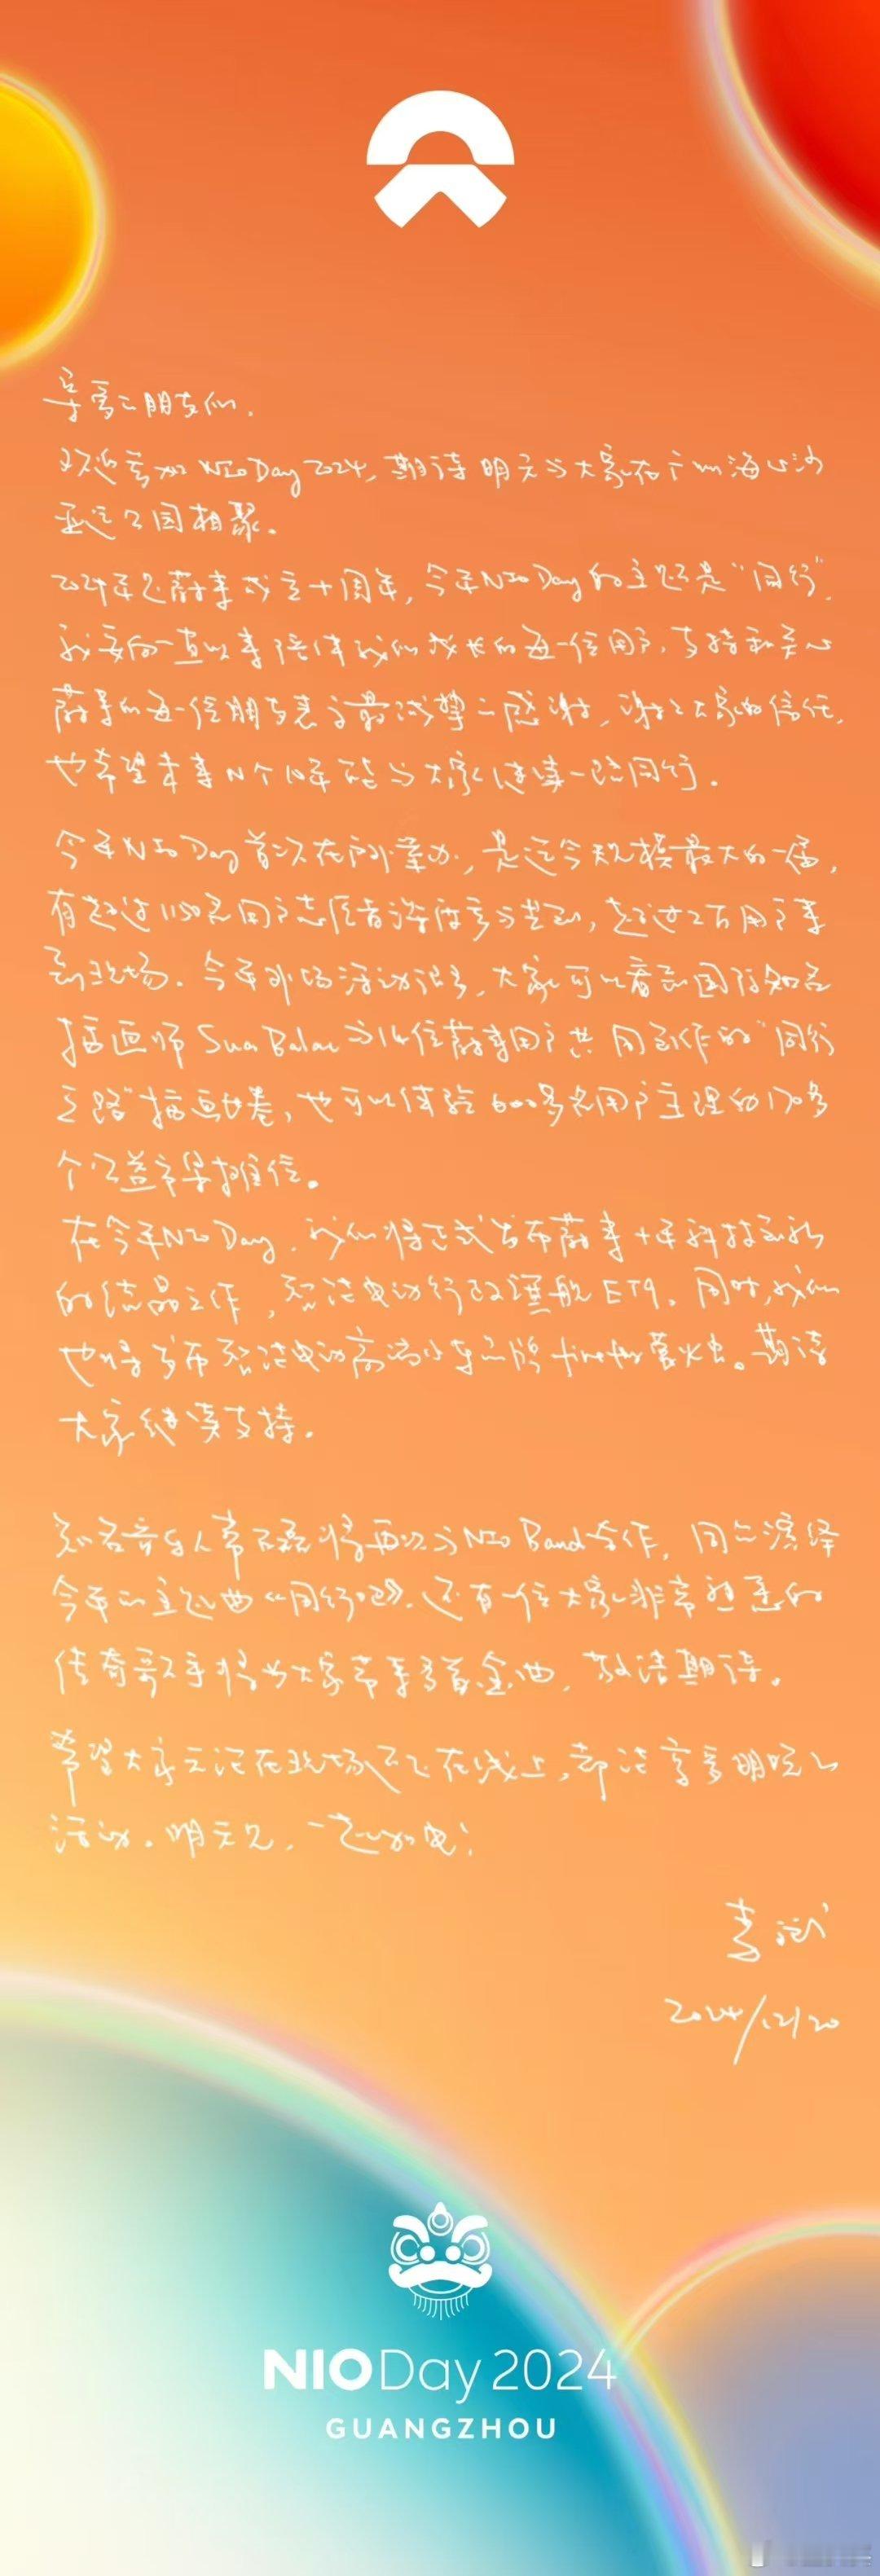 亲爱的朋友们，
欢迎参加NIO Day 2024，期待明天与大家在广州海心沙
亚运公园相聚。
2024年是蔚来成立十周年，今年NIO Day的主题是“同行”。
我要向一直以来陪伴我们成长的每一位用户，支持和关心
蔚来的每一位朋友表示最诚挚的感谢，谢谢大家的信任，
也希望未来N个10年能与大家继续一路同行。
今年NIO Day首次在户外举办，是迄今规模最大的一届，
有超过1150名用户志愿者深度参与共创，超过2万用户来
到现场。今年外场活动很多，大家可以看到国际知名
插画师 与14位蔚来用户共同创作的“同行
之路”插画长卷，也可以体验600多名用户主理的170多
个公益市集摊位。
在今年NIO Day，我们将正式发布蔚来十年科技创新
的结晶之作，智能电动行政旗舰ET9。同时，我们
也将发布智能电动高端小车品牌firefly萤火虫。期待
大家继续支持。
知名音乐人常石磊将再次与NIO Band合作，同台演绎
今年的主题曲《同行吧》。还有一位大家非常熟悉的
传奇歌手将为大家带来多首金曲，敬请期待。
希望大家无论在现场还是在线上，都能享受明晚的
活动。明天见，一起加电！
李斌
2024/12/20
NIO Day 2024
GUANGZHOU